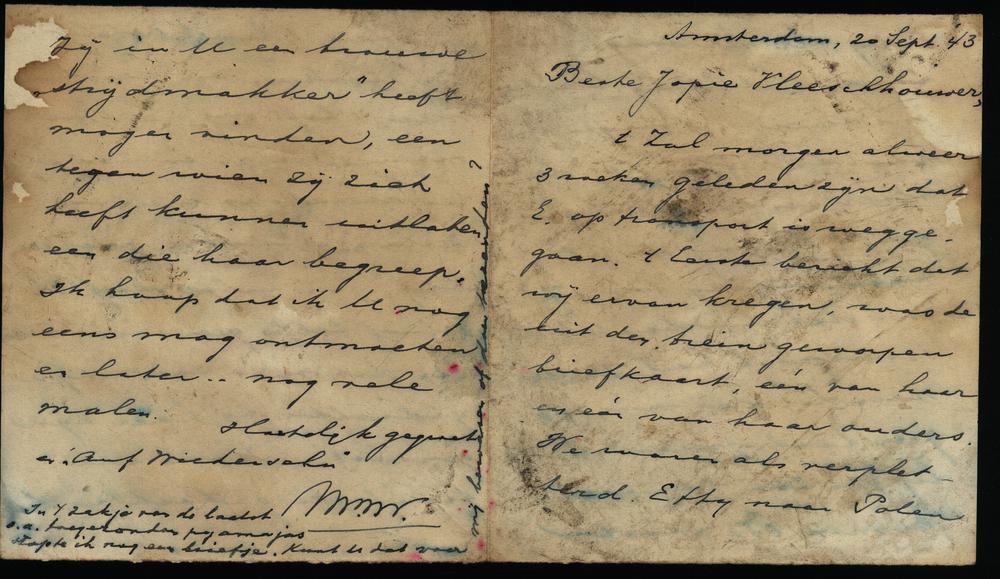 Amsterdam, 20 Sept. 43
Beste Jopie Vleeschhouwer,
't Zal morgen alweer
3 weken geleden zijn dat
E. op transport is wegge-
gaan. 't Eerste bericht dat
wij ervan kregen, was de
uit den trein geworpen
briefkaart, één van haar
en één van haar ouders.
We waren als verplet-
terd. Etty naar Polen
Zij in U een trouwe
"strijdmakker" heeft
mogen vinden, een
tegen wien zij zich
heeft kunnen uitlaten,
een die haar begreep.
Ik hoop dat ik U nog
eens mag ontmoeten
en later .. nog vele
malen.
Hartelijk gegroet
en "Auf Wiedersehn"
In 't zakje van de laatst
o.a. toegezonden pyamajas
stopte ik nog een briefje. Kunt U dat voor
mij bewaren of doen